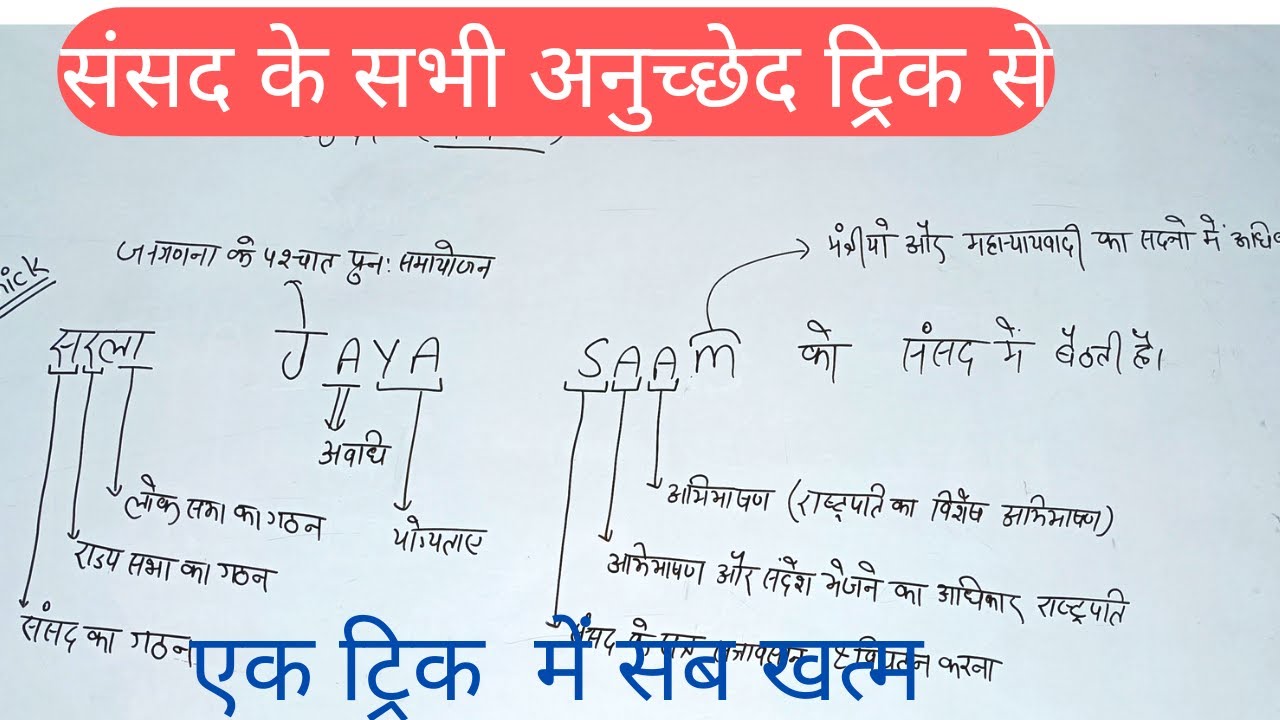 संसद के सभी अनुच्छेद ट्रिक से
जनगणना के पश्चात पुनः समायोजन
मंत्रीयो और महान्यायवादी का सदनो में
सरला JAYA SAAM को संसद में बैठती है।
अवधि
लोक सभा का गठन
योग्यताए
अभिभाषण (राष्ट्रपति का विशेष अभिभाषण)
राज्य सभा का गठन
अभिभाषण और संदेश भेजने का अधिकार राष्ट्रपति
संसद का गठन
संसद के सत्र सत्रावसान करना
एक ट्रिक में सब खत्म